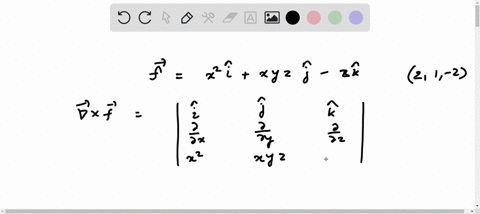 f⃗ = x² î + xyz ĵ - z k̂ (2, 1, -2)
∇⃗ × f⃗ = | î ĵ k̂ |
∂/∂x ∂/∂y ∂/∂z
x² xyz